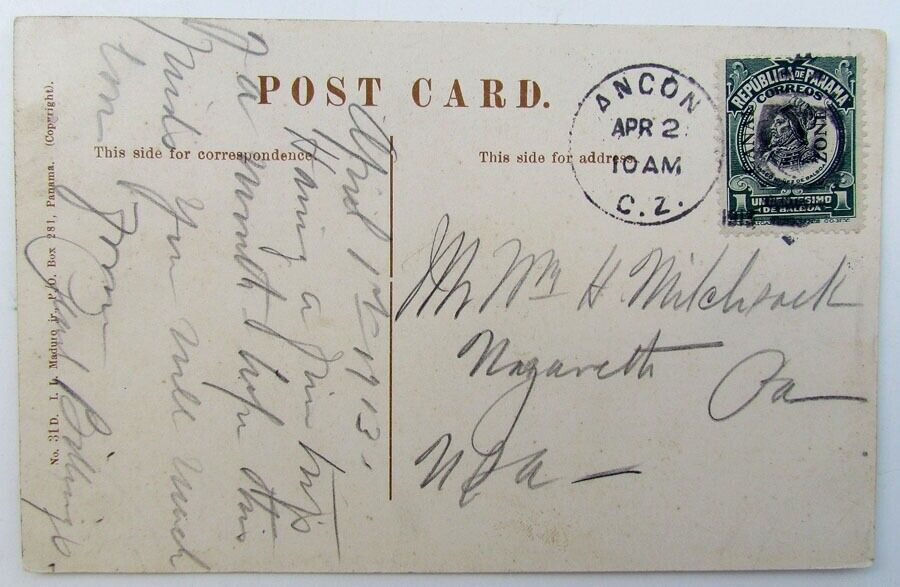 POST CARD.
This side for correspondence.
This side for address.
ANCON
APR 2
10 AM
C. Z.
1913
REPUBLICA DE PANAMA
CORREOS
CANAL ZONE
VASCO NUÑEZ DE BALBOA
1 UN CENTESIMO 1
DE BALBOA
April 1st 1913.
Having a fine trip
hope this
finds you well
from
Mr Wm H
Nazareth Pa
USA
No. 31D. I. L. Maduro jr. P.O. Box 281, Panama. (Copyright).